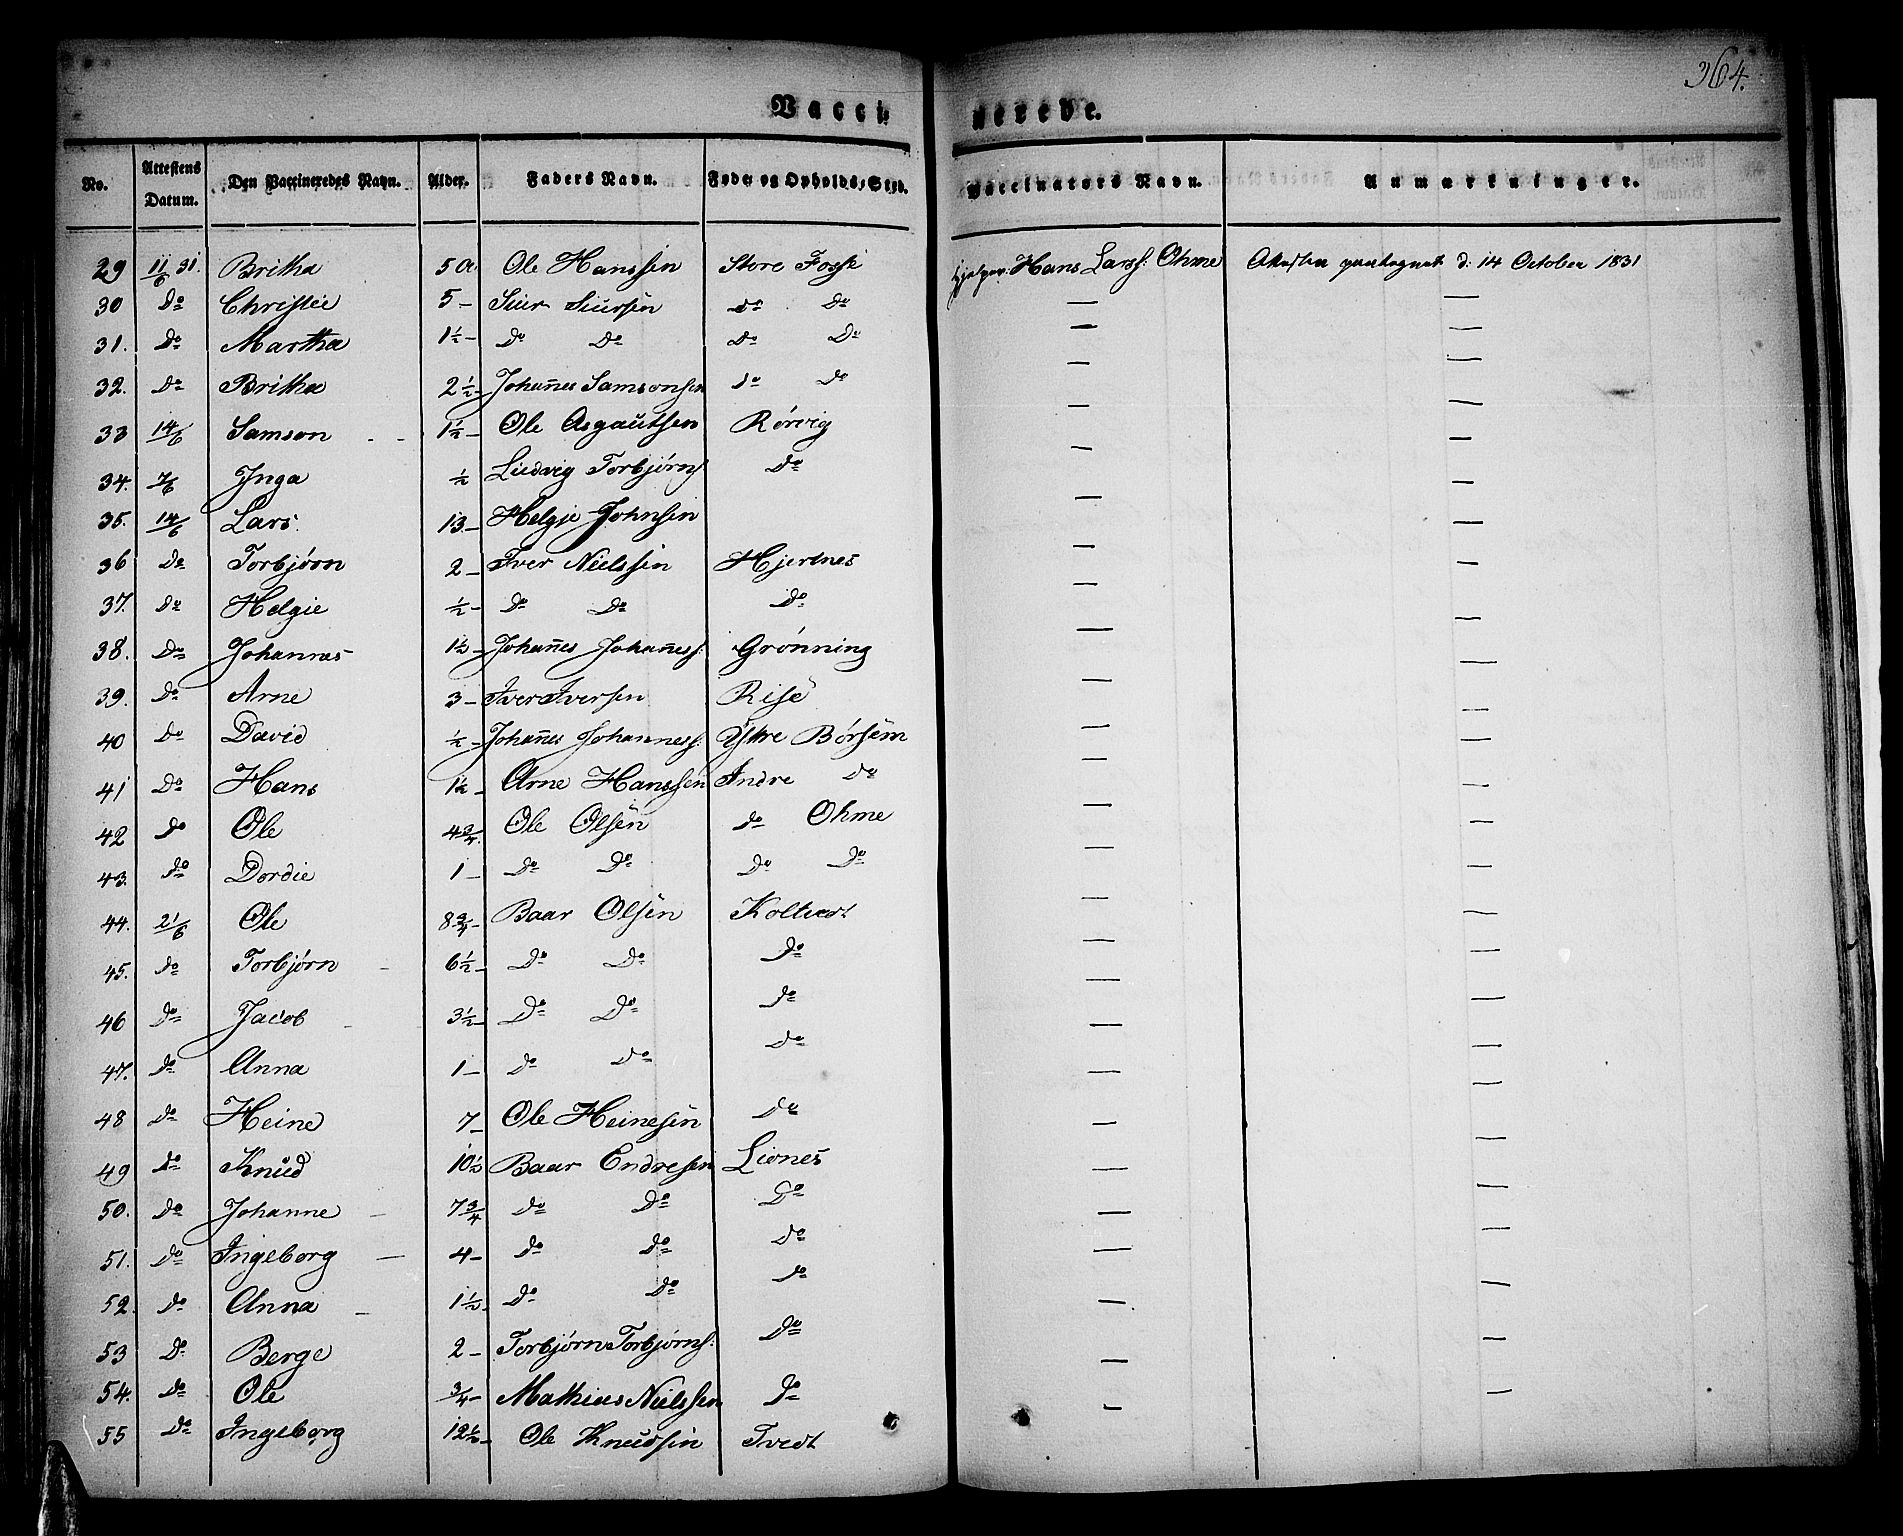 364.
Vacci- nerede.
No. Attestens Datum. Den Vaccineredes Navn. Alder. Faders Navn. Føde og Opholds-Sted. Vaccinators Navn. Anmærkninger.
29 11/6 31. Britha 5 Ole Hanssen Store Fosse Hans Larss: Ohme d: 14 October 1831
30 Do Christie 5 – Siur Siursen Do Do — —
31. Do Martha 1½ – Do Do Do Do — —
32. Do Britha 2½ – Johañes Samsonsen Do Do — —
33 14/6 Samson 1½ – Ole Asgautsen Rørvig — —
34. 7/6 Inga ½ Ludvig Torbjørns: Do — —
35. 14/6 Lars. 13 – Helgie Johnsen — —
36 Do Torbjørn 2 – Iver Nielssen Hjertnes — —
37. Do Helgie ½ – Do Do Do — —
38. Do Johannes 1½ – Johañes Johañess: Grønning — —
39. Do Arne 3 – Iver Iversen Rise — —
40 Do David ½ – Johañes Johanness: Ystre Børsem — —
41 Do Hans 1½ – Arne Hanssen Indre Do — —
42 Do Ole 4¾. Ole Olsen Do Ohme — —
43. Do Dordie 1 – Do Do Do Do — —
44. 21/6 Ole 8¾ – Baar Olsen Koltvedt — —
45. Do Torbjørn 6½ – Do Do Do — —
46 Do Jacob 3½ – Do Do Do — —
47. Do Anna 1 – Do Do Do — —
48 Do Heine 7 – Ole Heinesen Do — —
49 Do Knud 10½ Baar Endresen Lionès — —
50. Do Johanne 7¾ Do Do Do — —
51. Do Ingeborg 4 – Do Do Do — —
52. Do Anna 1½ – Do Do Do — —
53 Do Berge 2 – Torbjørn Torbjørns: Do — —
54. Do Ole ¾ – Mathias Nielssen Do — —
55 Do Ingeborg 12½ – Ole Knudsen Tvedt —